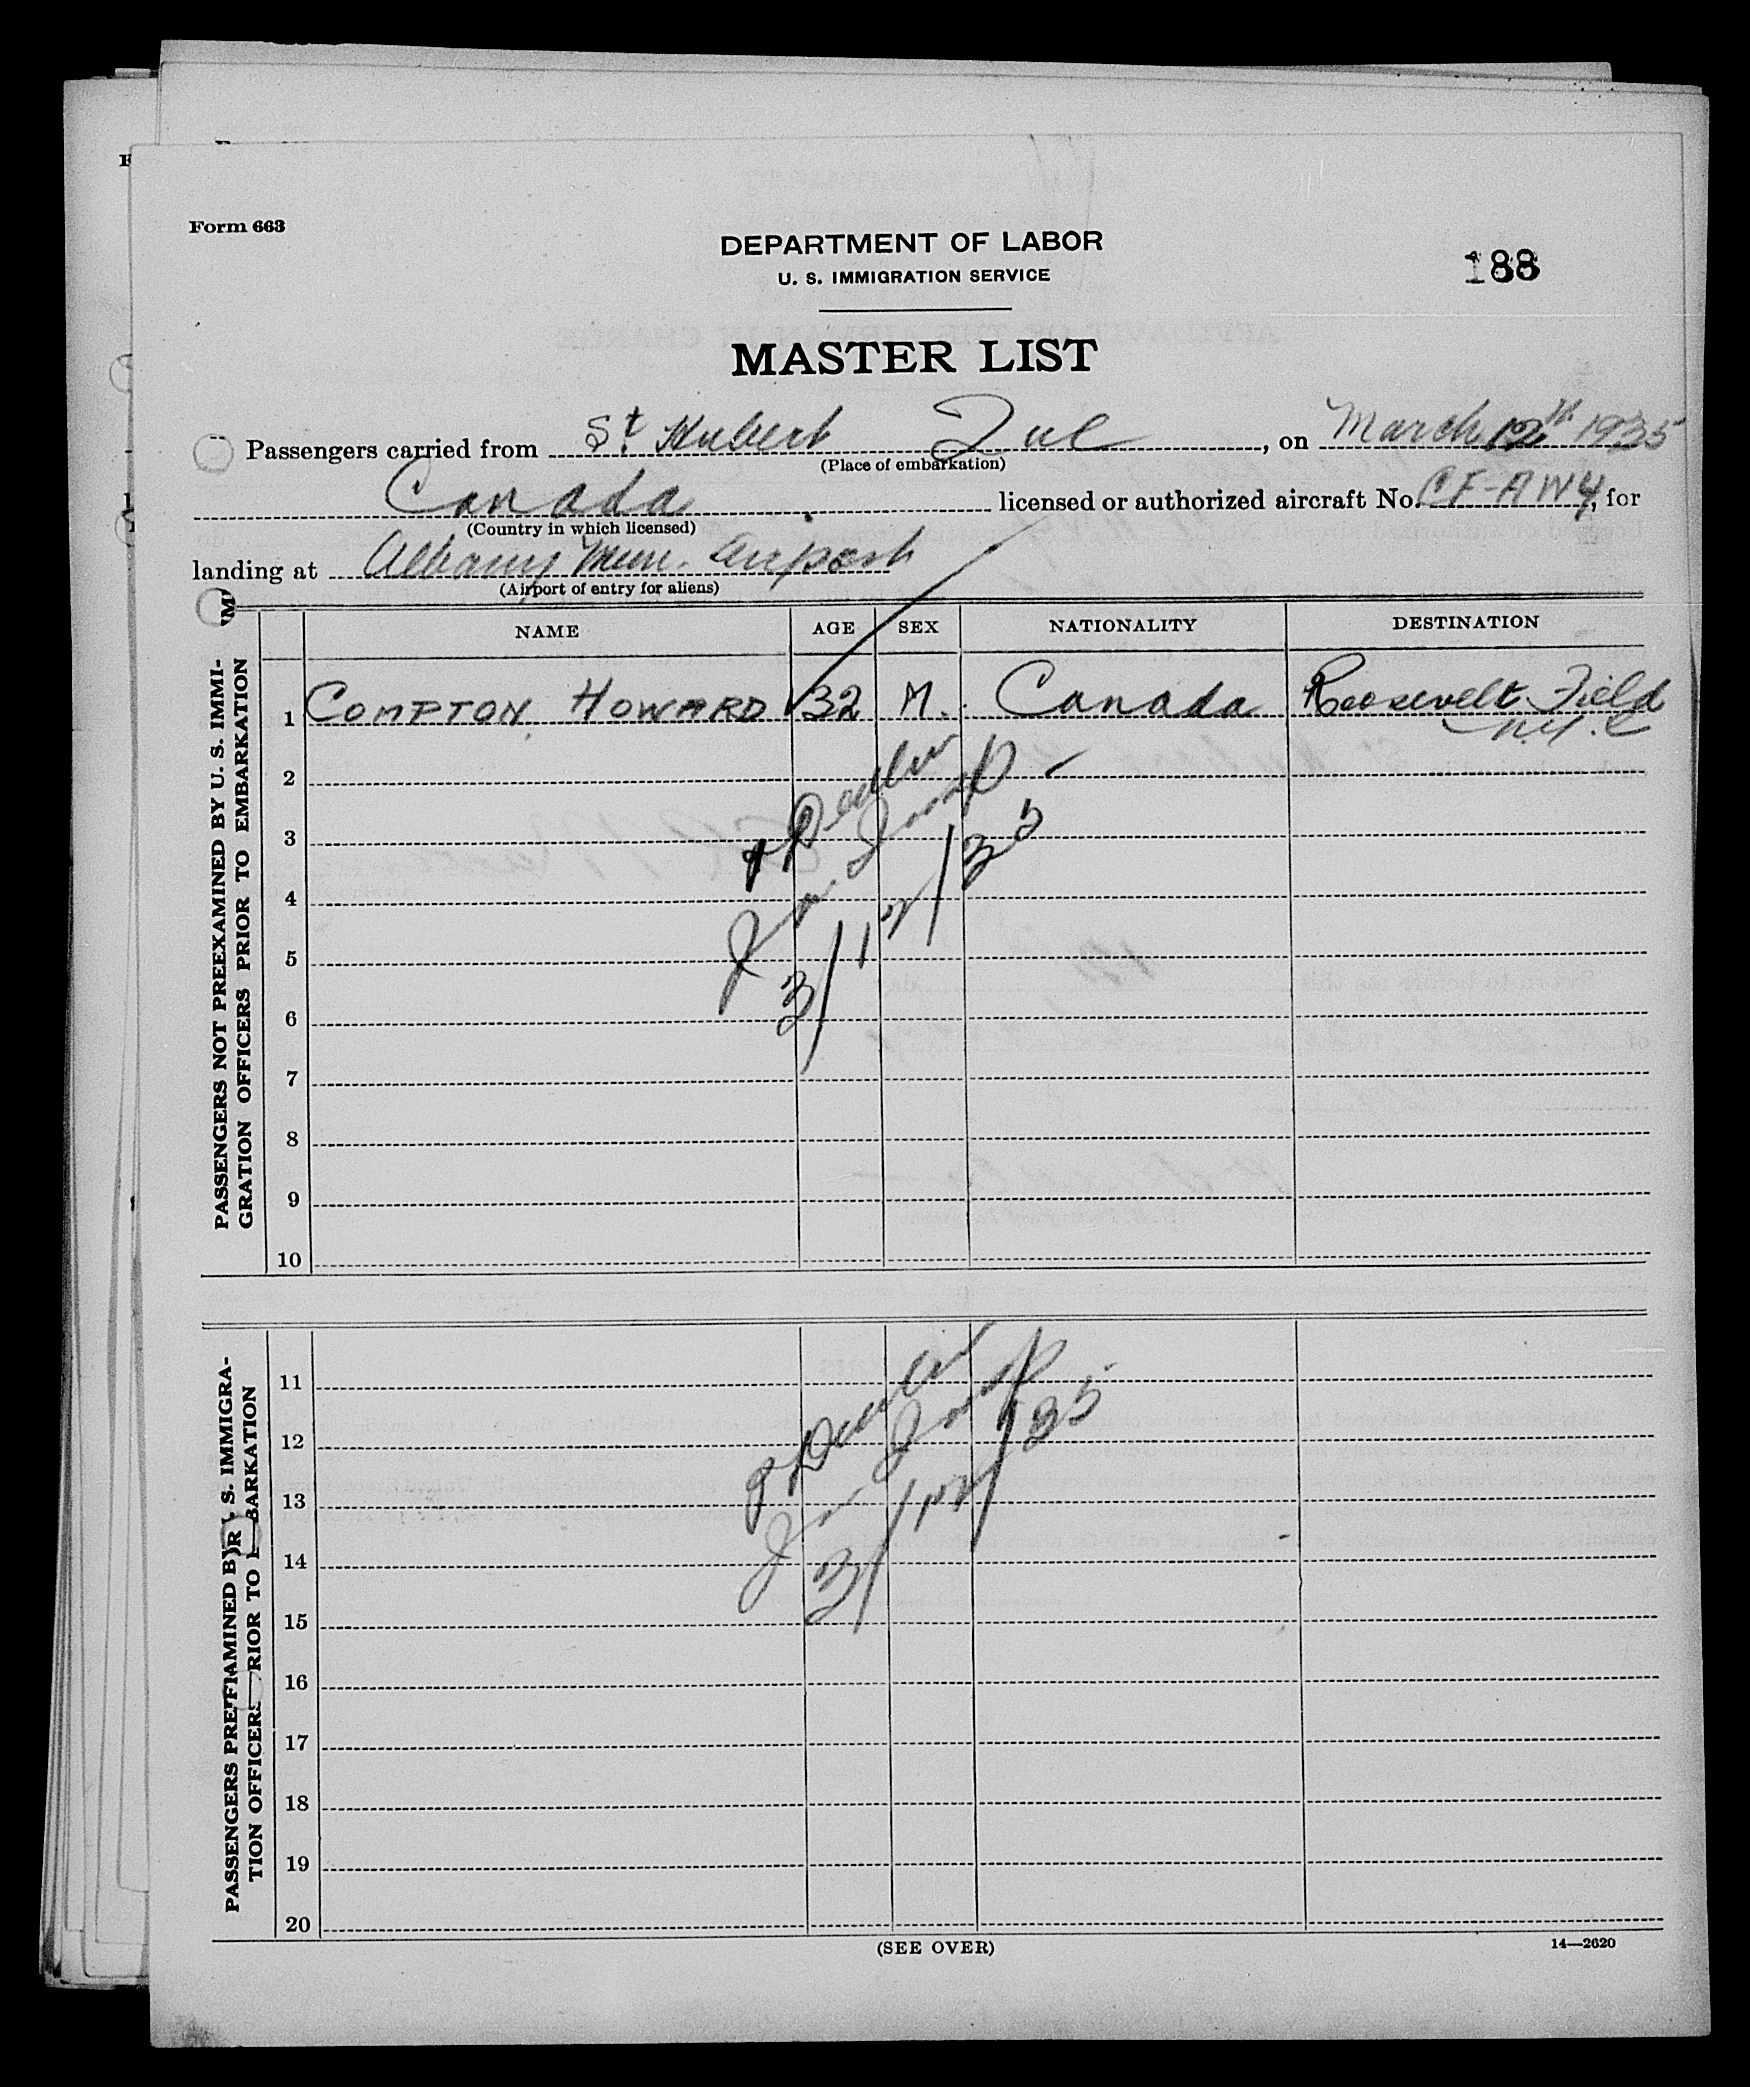 Form 663
DEPARTMENT OF LABOR
U. S. IMMIGRATION SERVICE
188
MASTER LIST
Passengers carried from St. Hubert Que, on March 12th 1935
(Place of embarkation)
Canada licensed or authorized aircraft No. CF-AWY, for
(Country in which licensed)
landing at Albany Mun. Airport
(Airport of entry for aliens)
NAME AGE SEX NATIONALITY DESTINATION
PASSENGERS NOT PREEXAMINED BY U. S. IMMI-
GRATION OFFICERS PRIOR TO EMBARKATION
1 COMPTON HOWARD 32 M. Canada Roosevelt Field
N.Y.C
2
3
4
3/12/35
5
6
7
8
9
10
PASSENGERS PREEXAMINED BY U. S. IMMIGRA-
TION OFFICERS PRIOR TO EMBARKATION
11
12
13
3/12/35
14
15
16
17
18
19
20
(SEE OVER)
14—2620